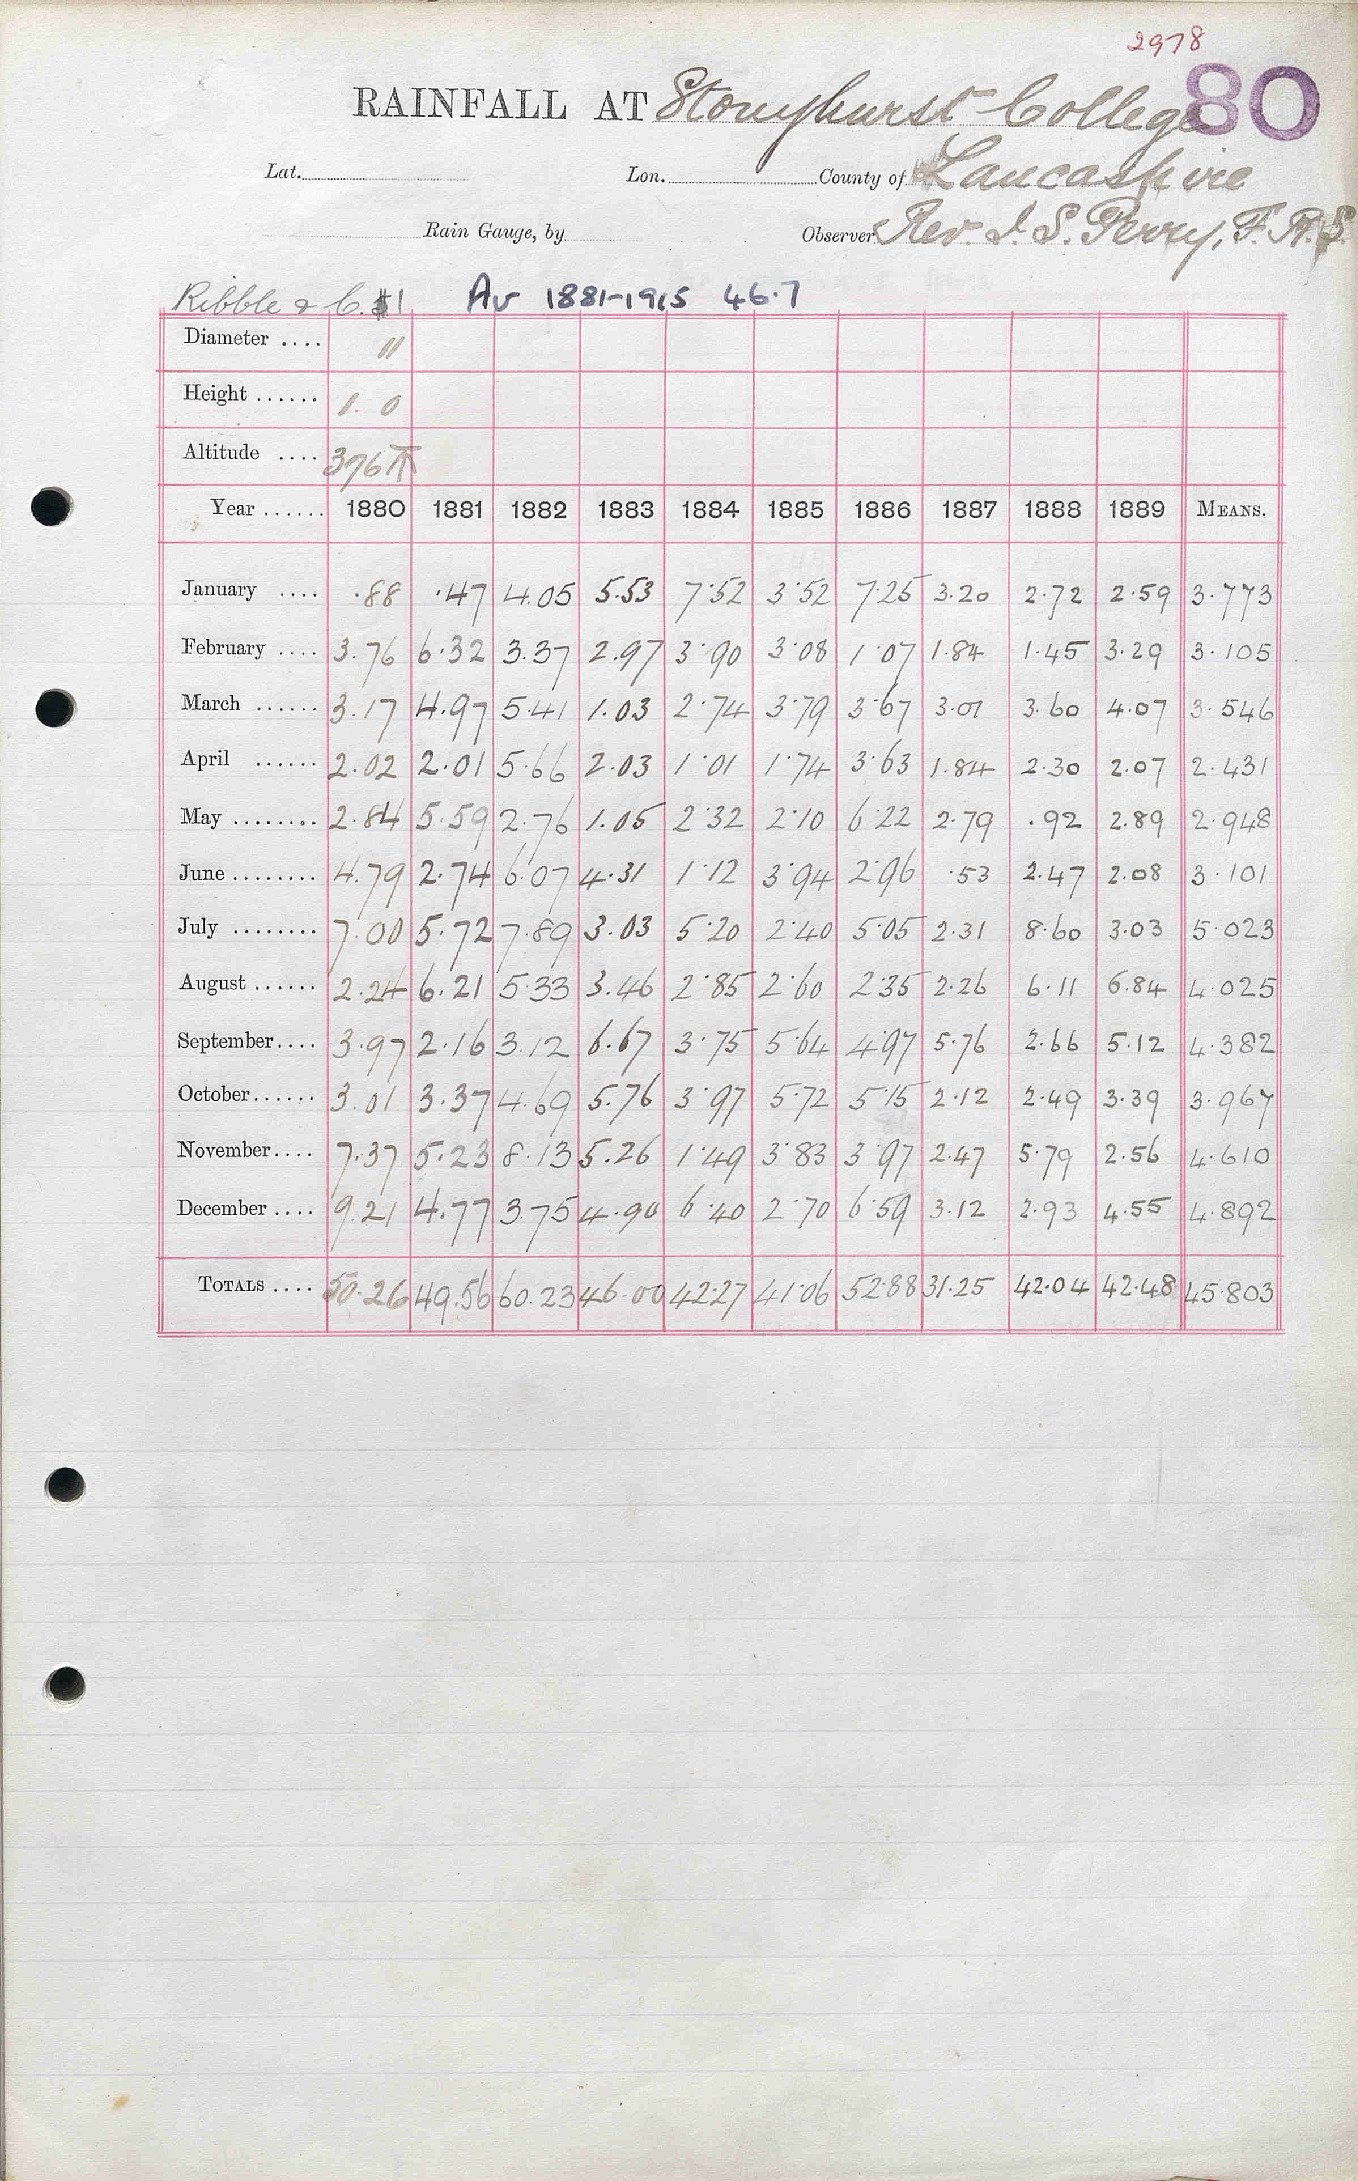 2978
RAINFALL AT Stonyhurst College 80
Lat. Lon. County of Lancashire
Rain Gauge, by Observer Rev. S. J. Perry, F.R.S.
Ribble & C. 1 Av 1881-1915 46.7
Diameter .... 11
Height ...... 1. 0
Altitude .... 376 ft
Year ...... 1880 1881 1882 1883 1884 1885 1886 1887 1888 1889 MEANS.
January .... .88 .47 4.05 5.53 7.52 3.52 7.25 3.20 2.72 2.59 3.773
February .... 3.76 6.32 3.37 2.97 3.90 3.08 1.07 1.84 1.45 3.29 3.105
March ...... 3.17 4.97 5.41 1.03 2.74 3.79 3.67 3.01 3.60 4.07 3.546
April ...... 2.02 2.01 5.66 2.03 1.01 1.74 3.63 1.84 2.30 2.07 2.431
May ........ 2.84 5.59 2.76 1.05 2.32 2.10 6.22 2.79 .92 2.89 2.948
June ........ 4.79 2.74 6.07 4.31 1.12 3.94 2.96 .53 2.47 2.08 3.101
July ........ 7.00 5.72 7.89 3.03 5.20 2.40 5.05 2.31 8.60 3.03 5.023
August ...... 2.24 6.21 5.33 3.46 2.85 2.60 2.35 2.26 6.11 6.84 4.025
September.... 3.97 2.16 3.12 6.67 3.75 5.64 4.97 5.76 2.66 5.12 4.382
October...... 3.01 3.37 4.69 5.76 3.97 5.72 5.15 2.12 2.49 3.39 3.967
November.... 7.37 5.23 8.13 5.26 1.49 3.83 3.97 2.47 5.79 2.56 4.610
December .... 9.21 4.77 3.75 4.90 6.40 2.70 6.59 3.12 2.93 4.55 4.892
TOTALS .... 50.26 49.56 60.23 46.00 42.27 41.06 52.88 31.25 42.04 42.48 45.803